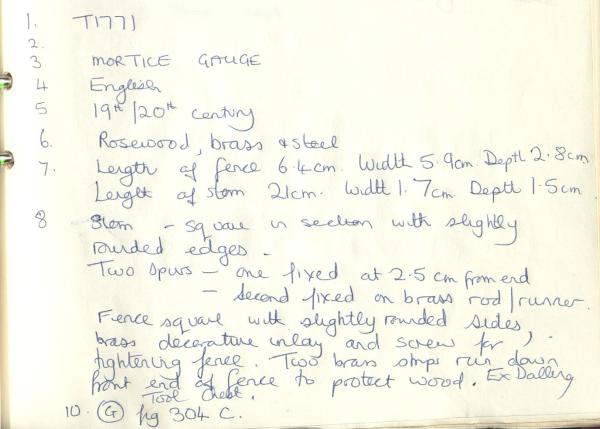 1. T1771
2.
3 MORTICE GAUGE
4 English
5 19th/20th century
6. Rosewood, brass & steel
7. Length of fence 6.4cm. Width 5.9cm. Depth 2.8cm
Length of stem 21cm. Width 1.7cm. Depth 1.5cm
8 Stem - square in section with slightly
rounded edges.
Two spurs - one fixed at 2.5 cm from end
- second fixed on brass rod/runner.
Fence square with slightly rounded sides,
brass decorative inlay and screw for
tightening fence. Two brass strips run down
front end of fence to protect wood. Ex Dalling
Tool Chest.
10. G fig 304 C.